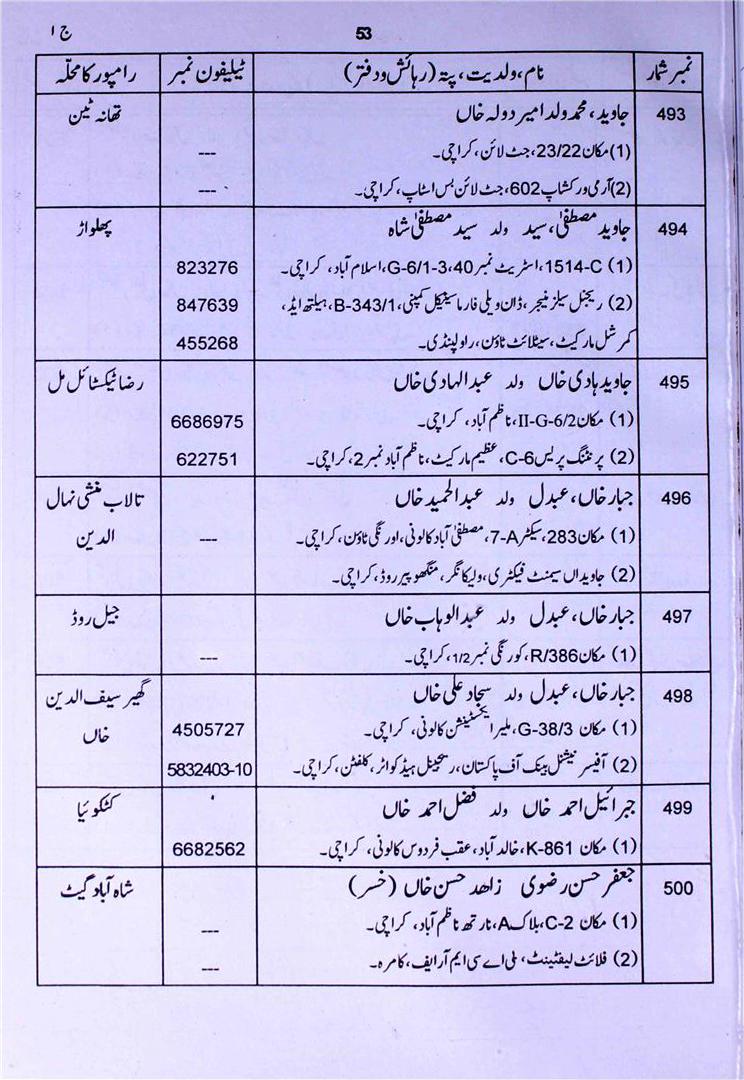 ج ا
53
نمبر شمار	نام، ولدیت، پتہ (رہائش و دفتر)	ٹیلیفون نمبر	رامپور کا محلّہ
493	جاوید، محمد ولد امیر دولہ خاں	تھانہ ٹین
(1) مکان 23/22، جٹ لائن، کراچی۔	---
(2) آرمی ورکشاپ 602، جٹ لائن بس اسٹاپ، کراچی۔	---
494	جاوید مصطفیٰ، سید ولد سید مصطفیٰ شاہ	پھلواڑ
(1) 1514-C، اسٹریٹ نمبر 40، G-6/1-3، اسلام آباد، کراچی۔	823276
(2) ریجنل سیلز منیجر، ڈان ویلی فارماسیٹیکل کمپنی، B-343/1، ہیلتھ ایڈ،	847639
کمرشل مارکیٹ، سیٹلائٹ ٹاؤن، راولپنڈی۔	455268
495	جاوید ہادی خاں ولد عبد الہادی خاں	رضا ٹیکسٹائل مل
(1) مکان II-G-6/2، ناظم آباد، کراچی۔	6686975
(2) پرنٹنگ پریس C-6، عظیم مارکیٹ، ناظم آباد نمبر 2، کراچی۔	622751
496	جبار خاں، عبدل ولد عبد الحمید خاں	تالاب منشی نہال
(1) مکان 283، سیکٹر 7-A، مصطفیٰ آباد کالونی، اورنگی ٹاؤن، کراچی۔	---	الدین
(2) جاویداں سیمنٹ فیکٹری، ولیکا نگر، منگھو پیر روڈ، کراچی۔
497	جبار خاں، عبدل ولد عبد الوہاب خاں	جیل روڈ
(1) مکان R/386، کورنگی نمبر 1/2، کراچی۔	---
498	جبار خاں، عبدل ولد سجاد علی خاں	گھیر سیف الدین
(1) مکان G-38/3، ملیر ایکسٹینشن کالونی، کراچی۔	4505727	خاں
(2) آفیسر نیشنل بینک آف پاکستان، ریجینل ہیڈ کواٹر، کلفٹن، کراچی۔	5832403-10
499	جبرائیل احمد خاں ولد فضل احمد خاں	کٹکوئیا
(1) مکان K-861، خالد آباد، عقب فردوس کالونی، کراچی۔	6682562
500	جعفر حسن رضوی زاہد حسن خاں (خسر)	شاہ آباد گیٹ
(1) مکان C-2، بلاک A، نارتھ ناظم آباد، کراچی۔	---
(2) فلائٹ لیفٹیننٹ، پی اے سی ایم آر ایف، کامرہ۔	---